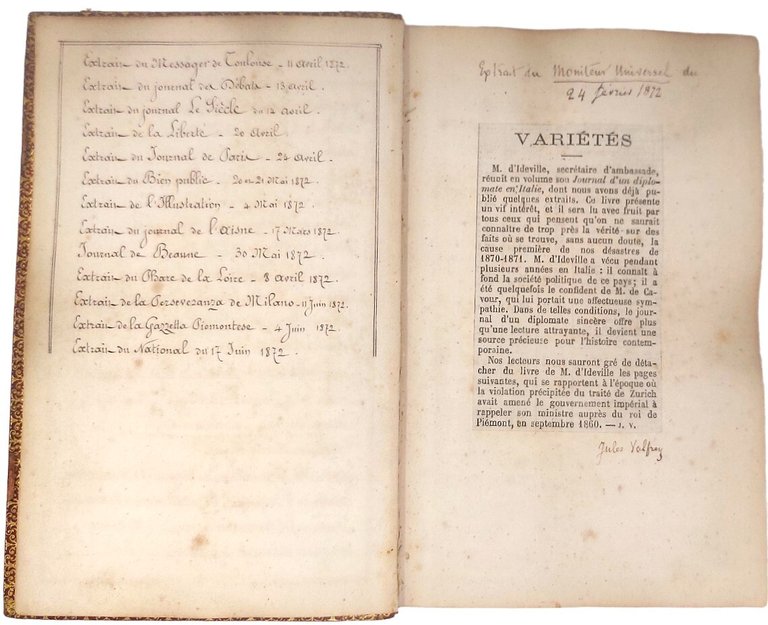 Extrait du Messager de Toulouse - 11 Avril 1872.
Extrait du journal des Débats - 13 avril.
Extrait du journal Le Siècle du 12 avril.
Extrait de la Liberté - 20 avril.
Extrait du Journal de Paris - 24 avril.
Extrait du Bien public - 20 et 21 Mai 1872.
Extrait de l'Illustration - 4 Mai 1872.
Extrait du journal de l'aisne - 17 Mars 1872.
Journal de Beaune - 30 Mai 1872.
Extrait du Phare de la Loire - 8 avril 1872.
Extrait de la Perseveranza de Milano - 11 Juin 1872.
Extrait de la Gazzetta Piemontese - 4 Juin 1872.
Extrait du National du 17 Juin 1872.
Extrait du Moniteur Universel du
24 février 1872
VARIÉTÉS
M. d'Ideville, secrétaire d'ambassade,
réunit en volume son Journal d'un diplo-
mate en Italie, dont nous avons déjà pu-
blié quelques extraits. Ce livre présente
un vif intérêt, et il sera lu avec fruit par
tous ceux qui pensent qu'on ne saurait
connaître de trop près la vérité sur des
faits où se trouve, sans aucun doute, la
cause première de nos désastres de
1870-1871. M. d'Ideville a vécu pendant
plusieurs années en Italie : il connaît à
fond la société politique de ce pays; il a
été quelquefois le confident de M. de Ca-
vour, qui lui portait une affectueuse sym-
pathie. Dans de telles conditions, le jour-
nal d'un diplomate sincère offre plus
qu'une lecture attrayante, il devient une
source précieuse pour l'histoire contem-
poraine.
Nos lecteurs nous sauront gré de déta-
cher du livre de M. d'Ideville les pages
suivantes, qui se rapportent à l'époque où
la violation précipitée du traité de Zurich
avait amené le gouvernement impérial à
rappeler son ministre auprès du roi de
Piémont, en septembre 1860. — J. V.
Jules Valfrey